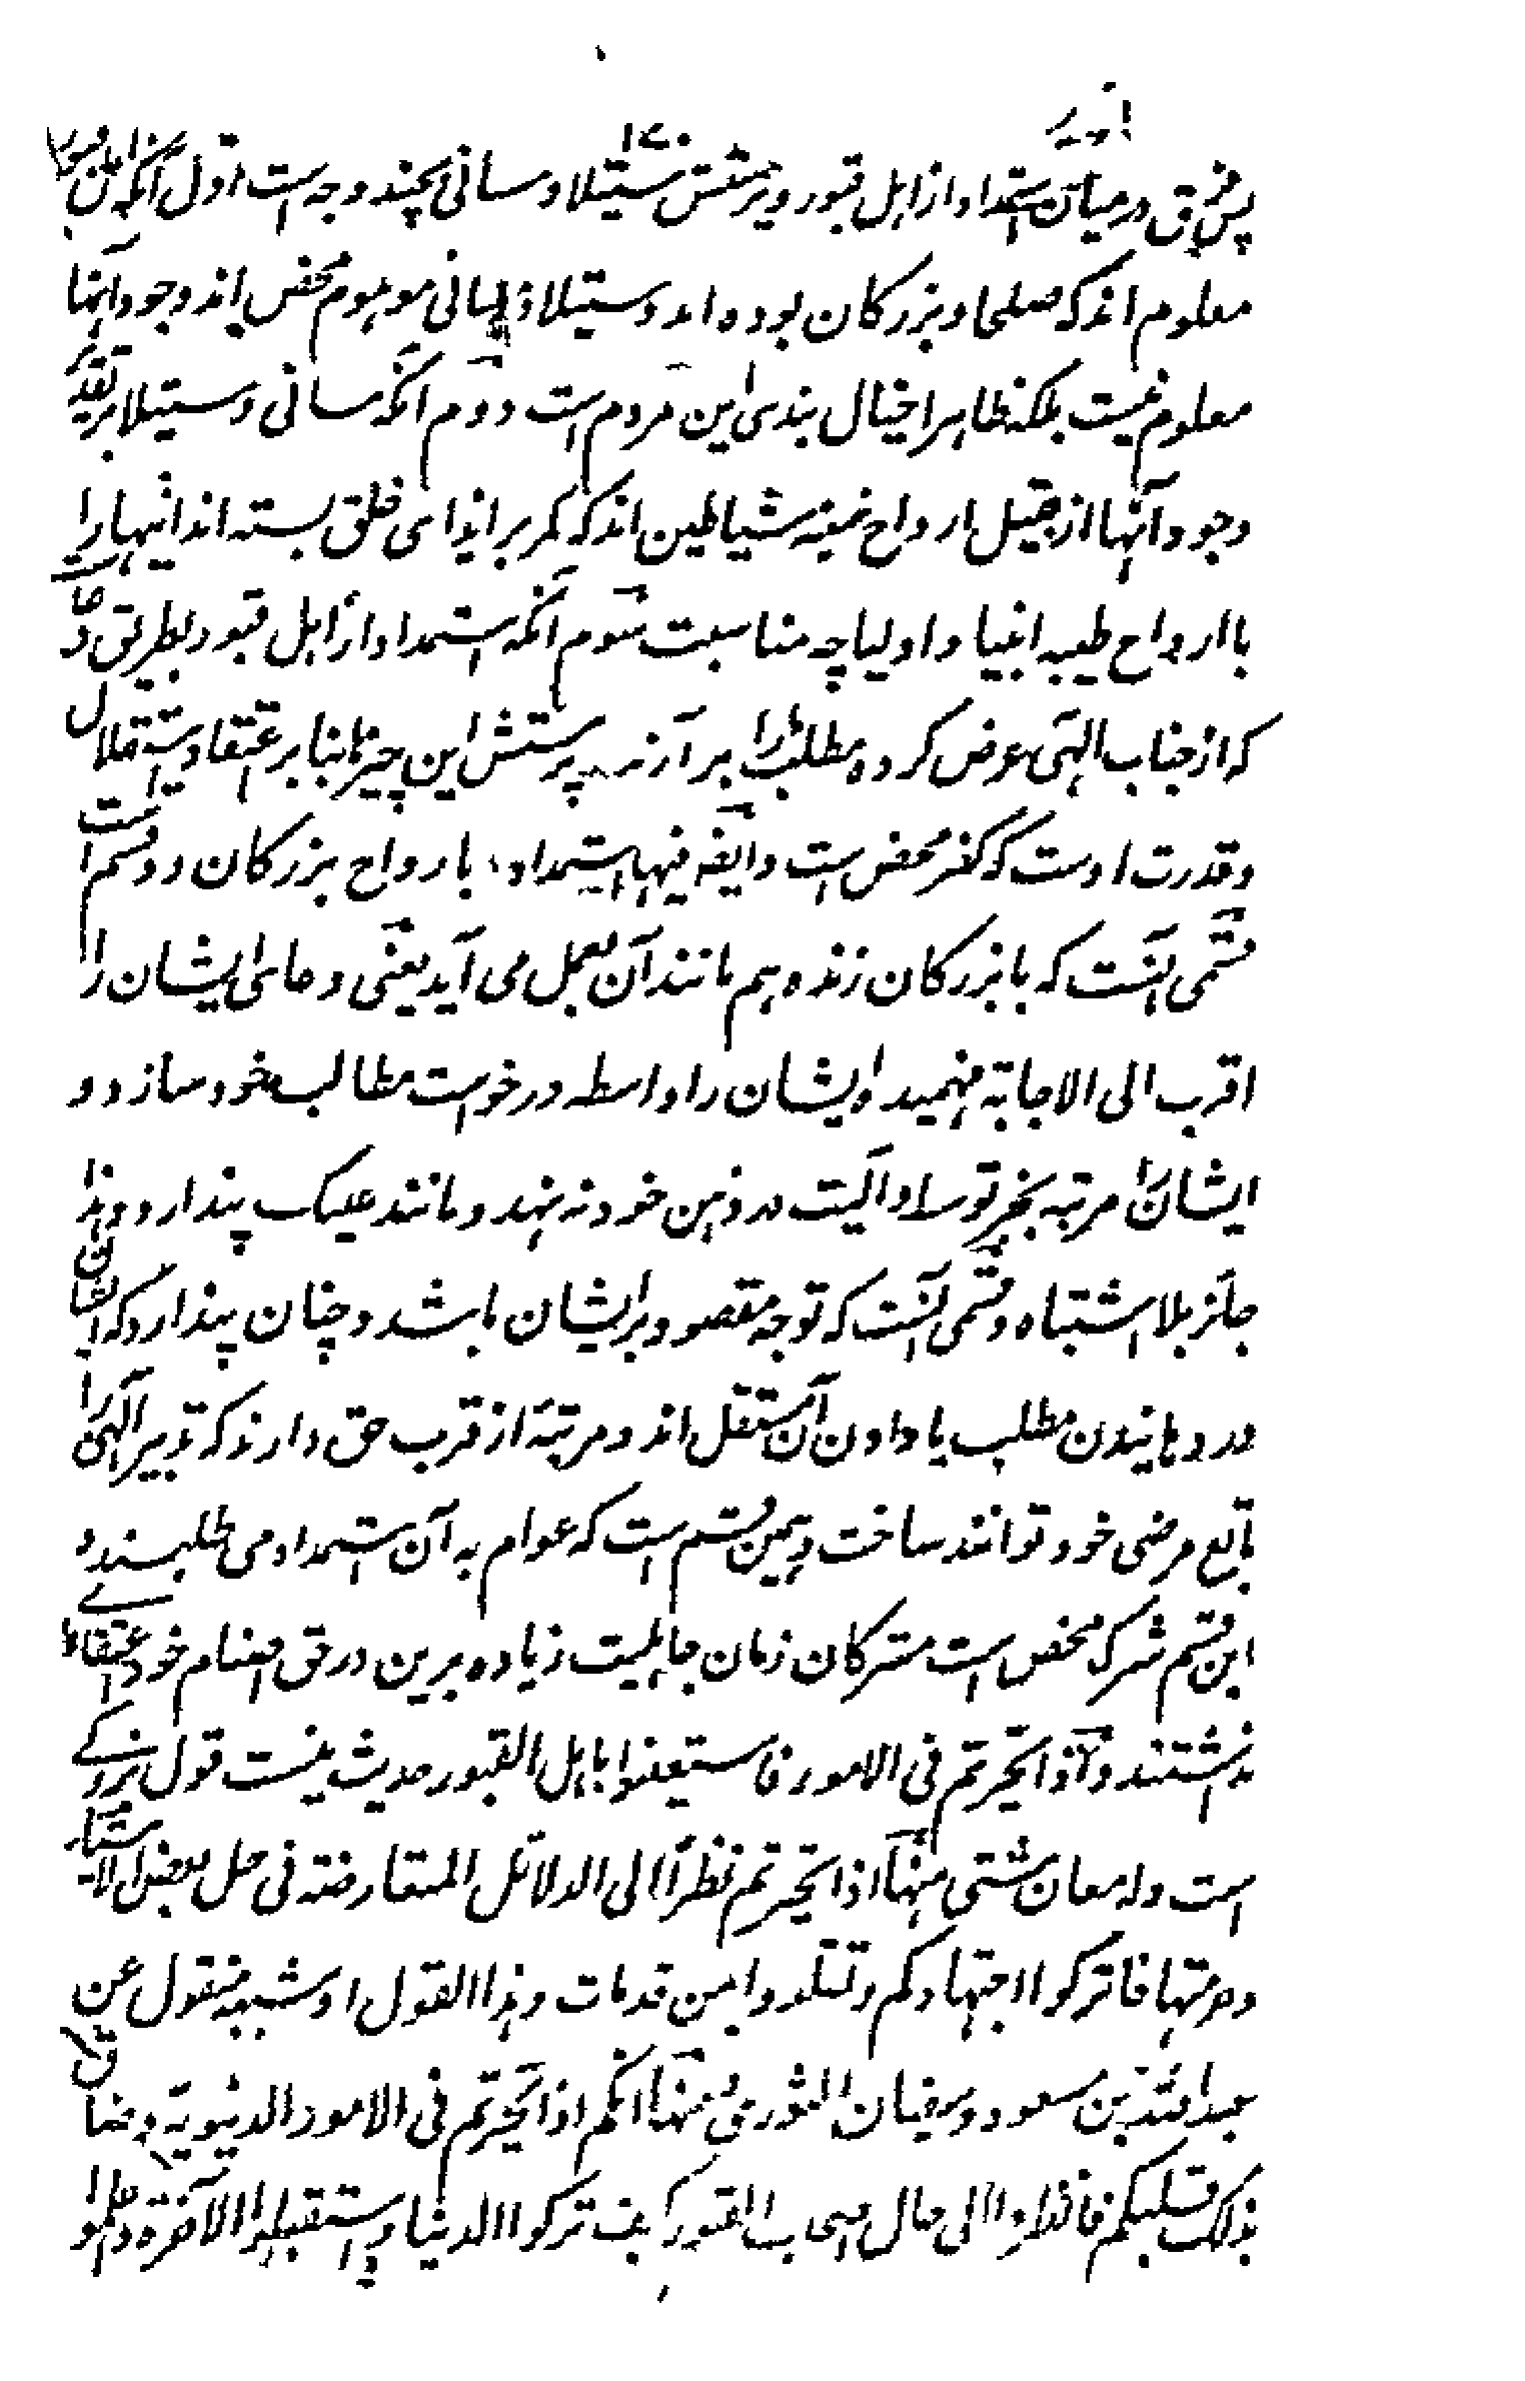 ۱۷۰
پس فرق درمیان استمداد از اهل قبور و پرستش سیتلا و سانی بچند وجه است اول آنکه اهل قبور
معلوم اند که صلحا و بزرکان بوده اند و سیتلا و سانی موهوم محض اند وجود آنها
معلوم نیست بلکه ظاهرا خیال بندی این مردم است دوم آنکه سانی و سیتلا بر تقدیر
وجود آنها از قبیل ارواح خبیثه شیاطین اند که کمر بر ایذای خلق بسته اند اینها را
با ارواح طیبه انبیا و اولیا چه مناسبت سوم آنکه استمداد از اهل قبور بطریق دعا
که از جناب الهی عرض کرده مطلب را برآرند پرستش این چیزها بنا بر اعتقاد استقلال
و قدرت اوست که کفر محض است و ایضه فیها استمداد بارواح بزرکان دو قسم است
قسمی آنست که با بزرکان زنده هم مانند آن بعمل می آید یعنی دعای ایشان را
اقرب الی الاجابة فهمیده ایشان را واسطه درخواست مطالب خود سازد و
ایشان را مرتبه بخر توسل و آلیت در ذهن خود نه نهد و مانند عینک پندارد و هذا
جائز بلا اشتباه و قسمی آنست که توجه مقصور بر ایشان باشد و چنان پندارد که ایشان
در دهانیدن مطلب یا دادن آن مستقل اند و مرتبۀ از قرب حق دارند که تدبیر الهی را
تابع مرضی خود توانند ساخت و همین قسم است که عوام به آن استمداد می طلبند و
این قسم شرک محض است مشرکان زمان جاهلیت زیاده برین در حق اصنام خود اعتقاد
نداشتند و اذا تحیرتم فی الامور فاستعینوا باهل القبور حدیث نیست قول بزرکی
است وله معان شتی منها اذا تحیرتم نظرا الی الدلائل المتعارضه فی حل بعض الاشیاء
و حرمتها فاترکوا اجتهادکم و تقلدوا من قدمات و هذا القول او شبیه منقول عن
عبدالله بن مسعود و سفیان الثوری و منها انکم اذا تحیرتم فی الامور الدنیویة و ضاق
بذلک قلبکم فانظروا الی حال اصحاب القبور کیف ترکوا الدنیا و استقبلوا الآخرة و اعلموا